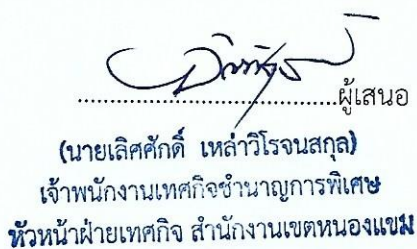 ....................................ผู้เสนอ
(นายเลิศศักดิ์ เหล่าวิโรจนสกุล)
เจ้าพนักงานเทศกิจชำนาญการพิเศษ
หัวหน้าฝ่ายเทศกิจ สำนักงานเขตหนองแขม